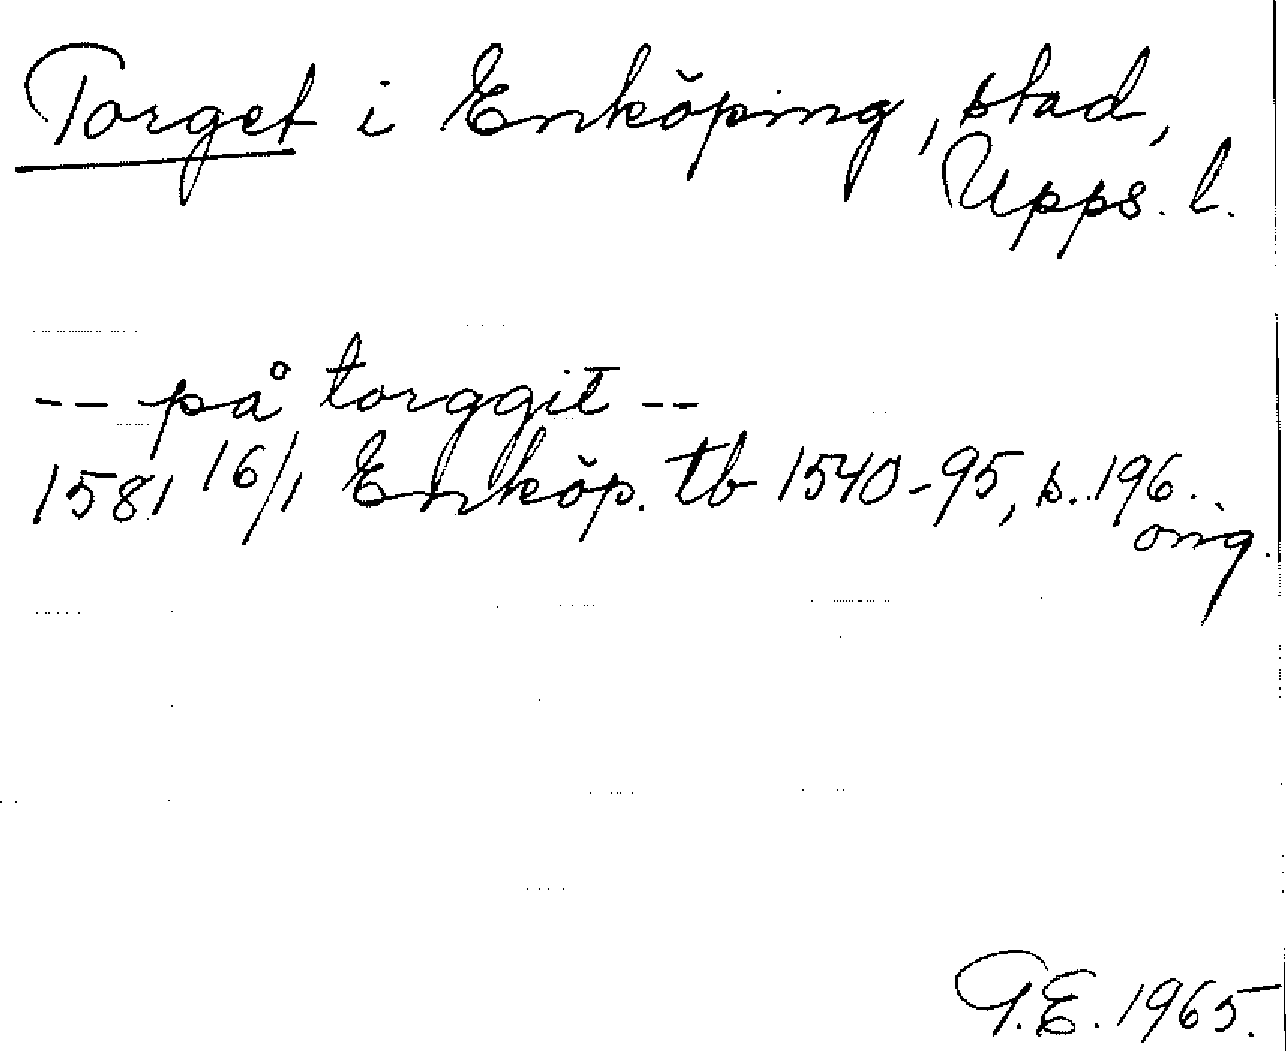 Torget i Enköping, stad,
Upps. l.
-- på torggit --
1581 16/1 Enköp. tb 1540-95, s. 196.
orig.
G.E. 1965.